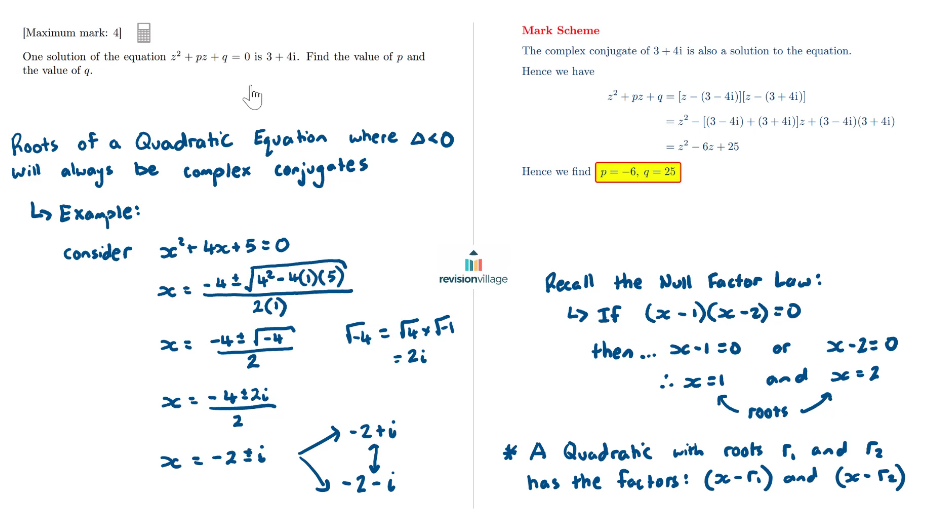 [Maximum mark: 4]
One solution of the equation z² + pz + q = 0 is 3 + 4i. Find the value of p and
the value of q.
Roots of a Quadratic Equation where Δ<0
will always be complex conjugates
↳ Example:
consider x² + 4x + 5 = 0
x = (-4 ± √(4² - 4(1)(5))) / 2(1)
x = (-4 ± √-4) / 2
√-4 = √4 × √-1
= 2i
x = (-4 ± 2i) / 2
x = -2 ± i
-2 + i
-2 - i
revisionvillage
Mark Scheme
The complex conjugate of 3 + 4i is also a solution to the equation.
Hence we have
z² + pz + q = [z − (3 − 4i)][z − (3 + 4i)]
= z² − [(3 − 4i) + (3 + 4i)]z + (3 − 4i)(3 + 4i)
= z² − 6z + 25
Hence we find p = −6, q = 25
Recall the Null Factor Law:
↳ If (x - 1)(x - 2) = 0
then ... x - 1 = 0 or x - 2 = 0
∴ x = 1 and x = 2
roots
* A Quadratic with roots r₁ and r₂
has the factors: (x - r₁) and (x - r₂)